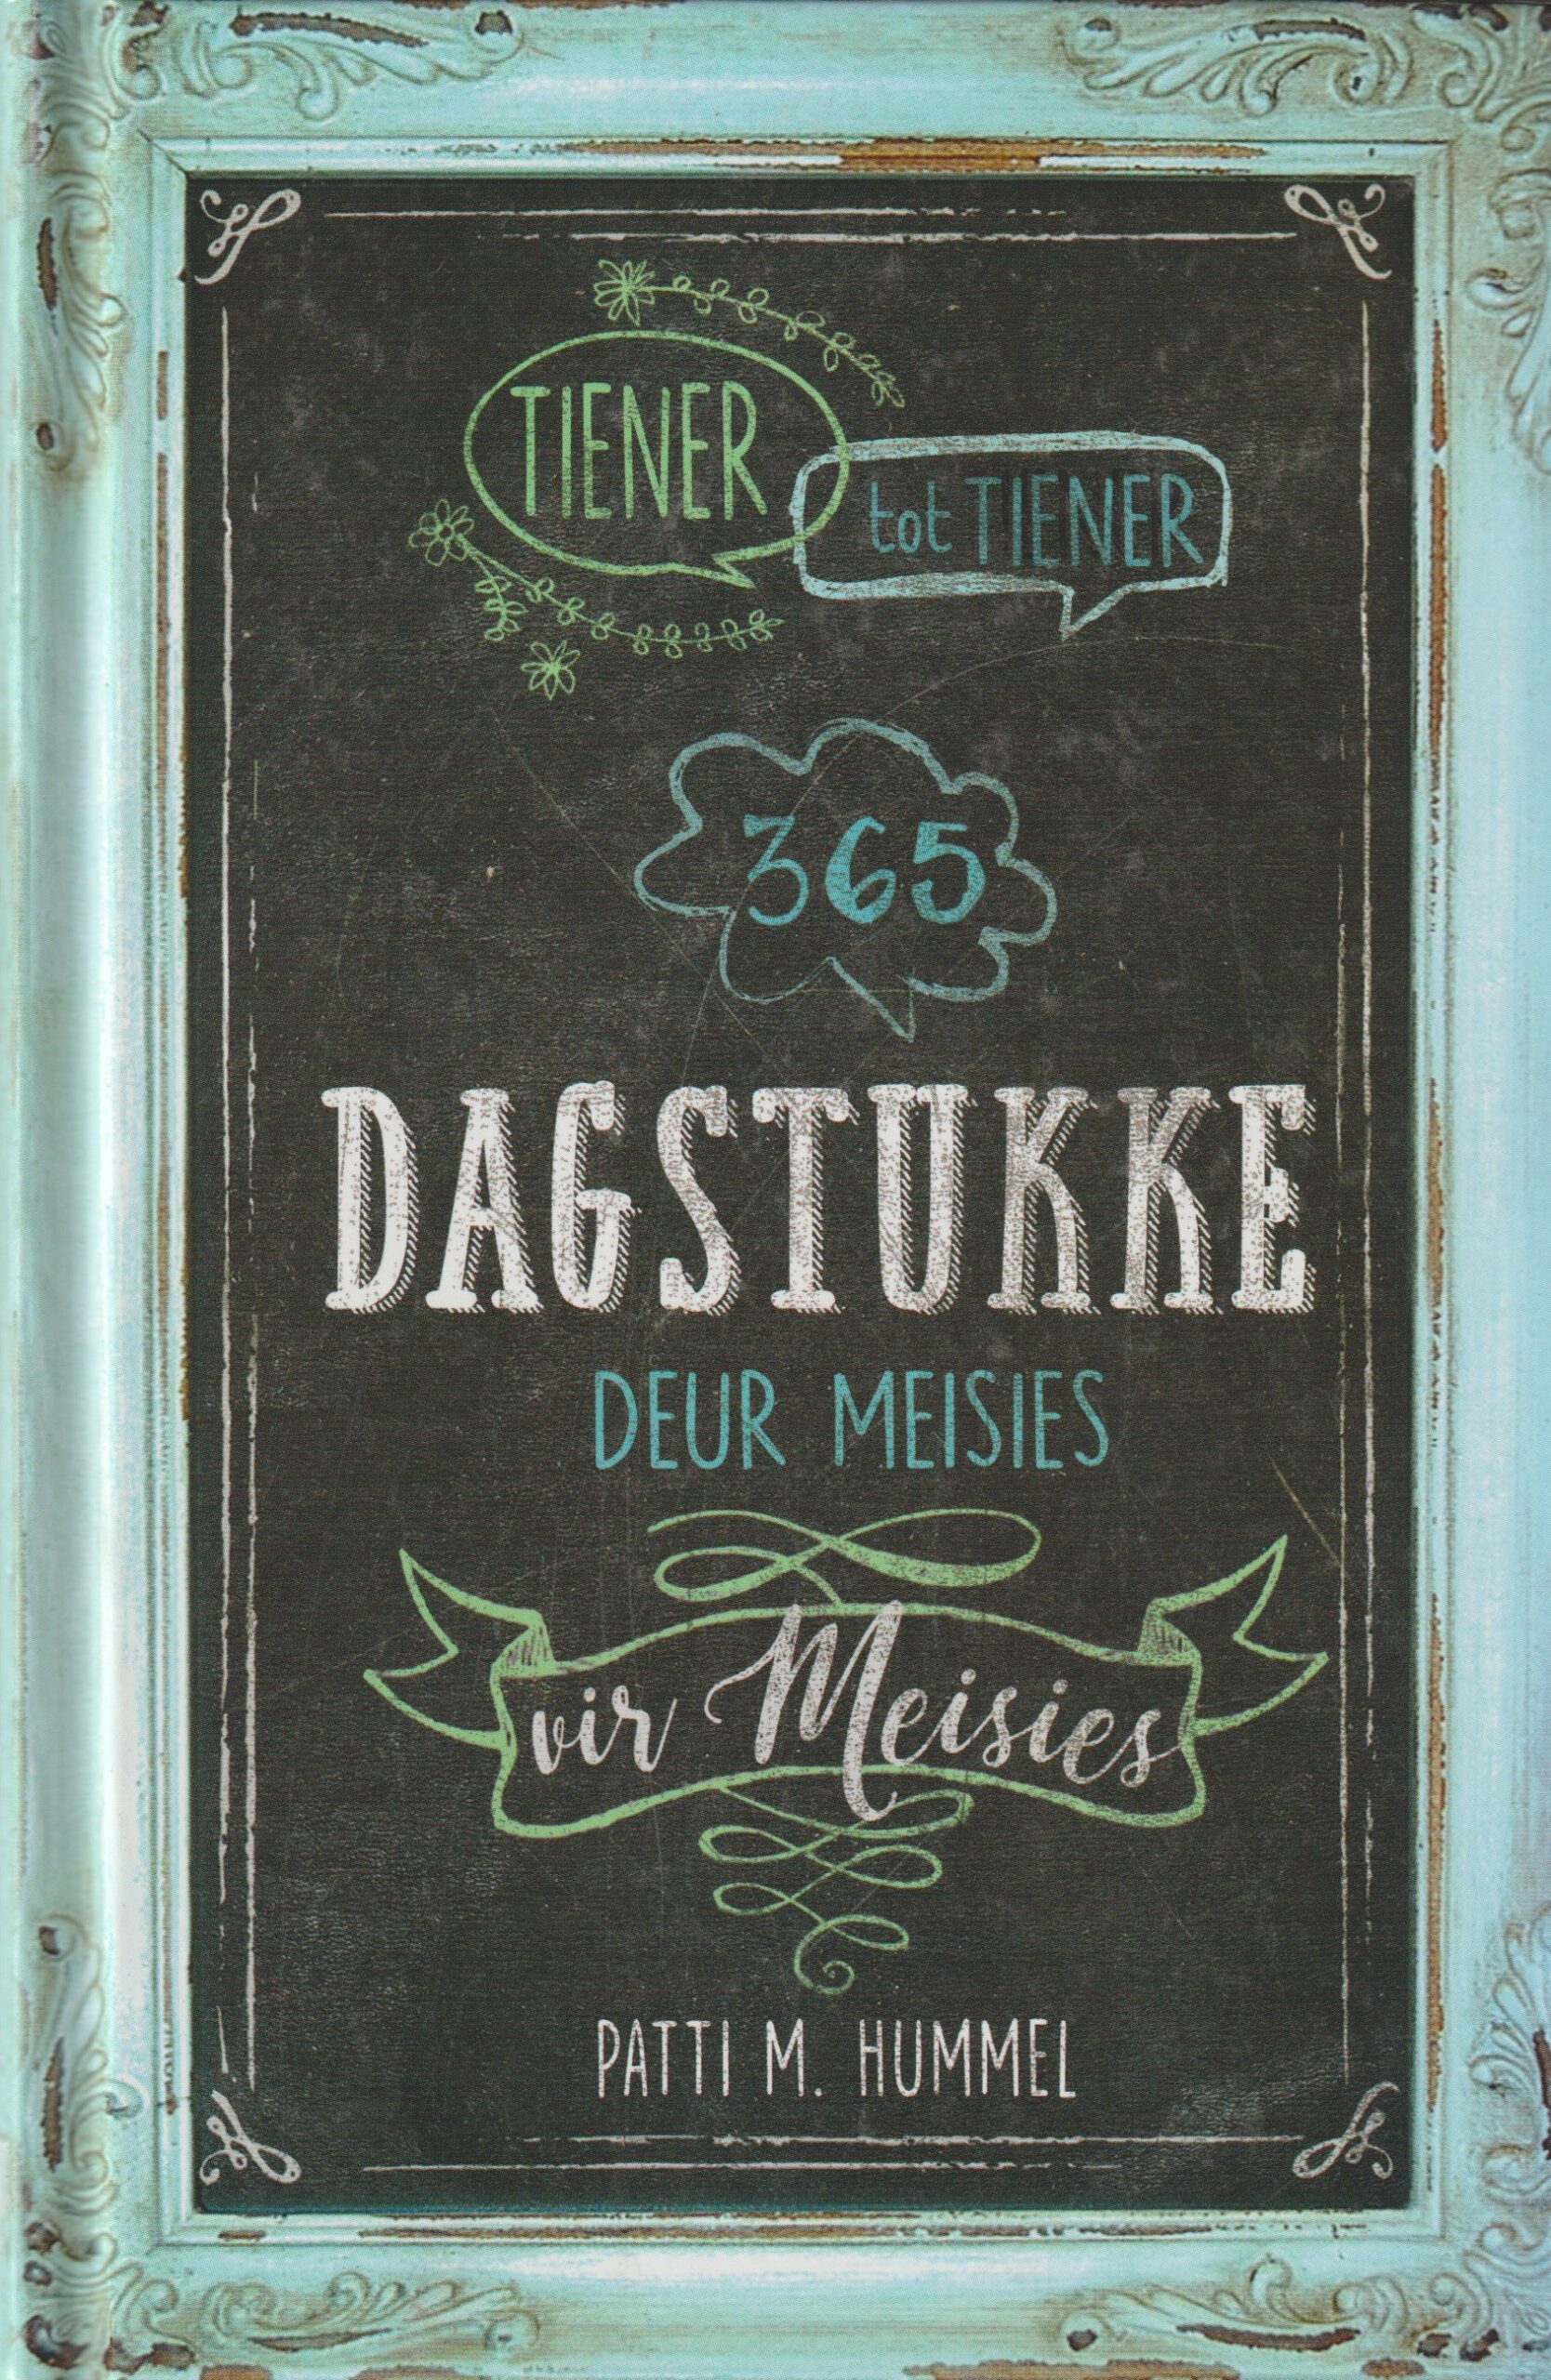 TIENER
tot TIENER
365
DAGSTUKKE
DEUR MEISIES
vir Meisies
PATTI M. HUMMEL